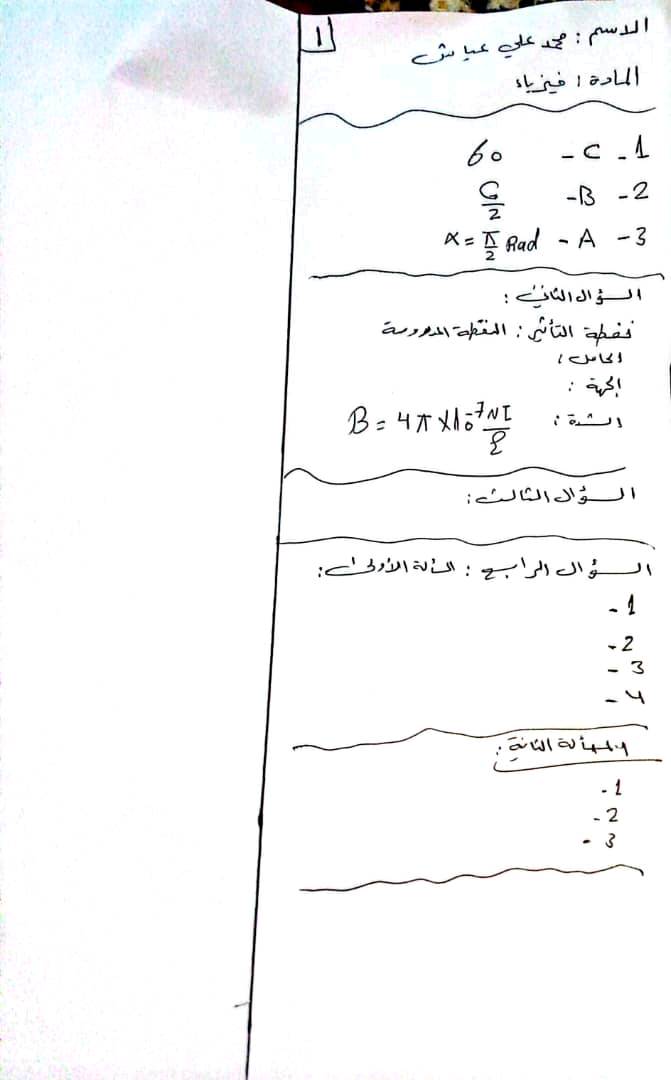 1
الاسم : محمد علي عياش
المادة : فيزياء
1 - C - 60
2 - B - G/2
3 - A - α = π/2 Rad
السؤال الثاني :
نقطة التأثير : النقطة المدروسة
الحامل :
الجهة :
الشدة : B = 4π×10⁻⁷ NI/ℓ
السؤال الثالث :
السؤال الرابع : المسألة الأولى :
1 -
2 -
3 -
4 -
المسألة الثانية :
1 -
2 -
3 -